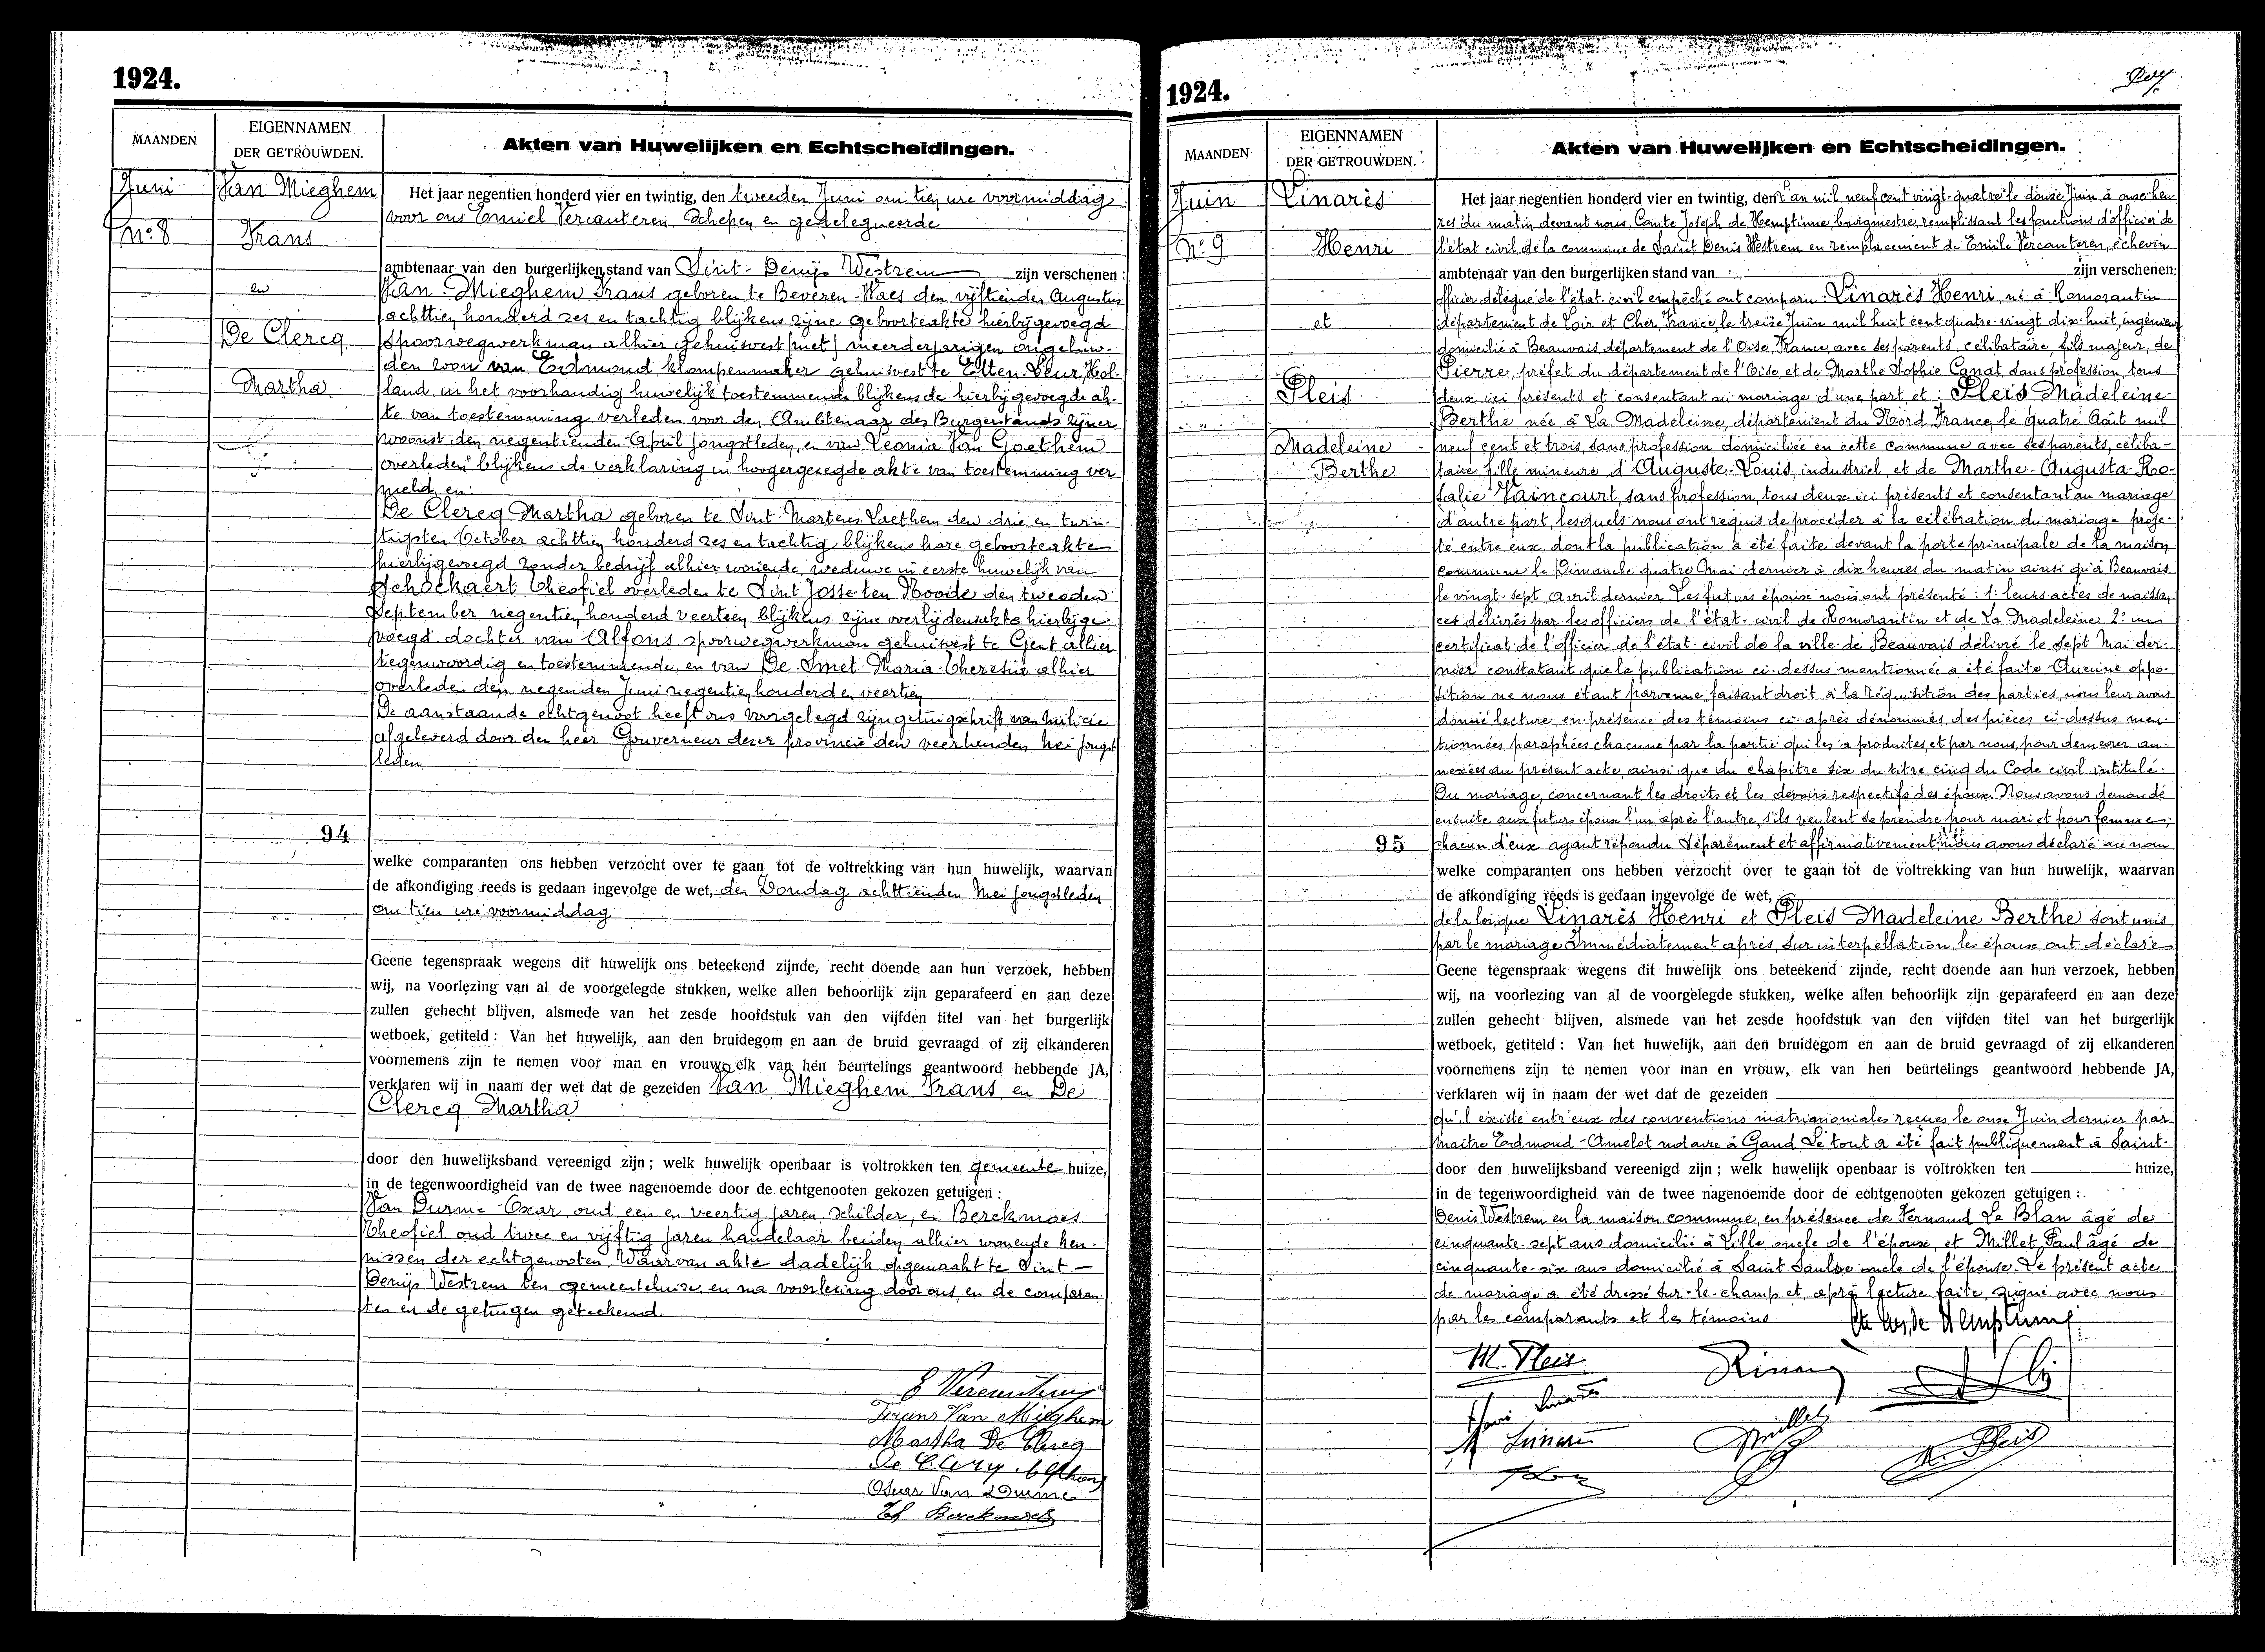 1924.
MAANDEN
EIGENNAMEN
DER GETROUWDEN.
Akten van Huwelijken en Echtscheidingen.
Juni
N° 8
Van Mieghem
Frans
en
De Clercq
Martha
Het jaar negentien honderd vier en twintig, den tweeden Juni om tien ure voormiddag
voor ons Emiel Vercauteren Schepen en gedelegueerde
ambtenaar van den burgerlijken stand van Sint-Denijs Westrem zijn verschenen:
Van Mieghem Frans geboren te Beveren-Waes den vijftienden Augustus
achttien honderd zes en tachtig blijkens zijne geboorteakte hierbijgevoegd
spoorwegwerkman alhier gehuisvest (met) meerderjarigen ongehuw-
den zoon van Edmond klompenmaker gehuisvest te Etten-Leur, Hol-
land, in het voorhandig huwelijk toestemmende blijkens de hierbijgevoegde ak-
te van toestemming verleden voor den Ambtenaar des Burgerstands zijner
woonst den negentienden April jongstleden, en van Leonia Van Goethem
overleden blijkens de verklaring in hoogergezegde akte van toestemming ver
meld, en:
De Clercq Martha geboren te Sint-Martens Laethem den drie en twin-
tigsten October achttien honderd zes en tachtig blijkens hare geboorteakte
hierbijgevoegd zonder bedrijf alhier wonende, weduwe in eerste huwelijk van
Schockaert Theofiel overleden te Sint Josse ten Noode den tweeden
September negentien honderd veertien blijkens zijne overlijdensakte hierbijge
voegd dochter van Alfons spoorwegwerkman gehuisvest te Gent alhier
tegenwoordig en toestemmende, en van De Smet Maria-Theresia alhier
overleden den negenden Juni negentien honderd en veertien
De aanstaande echtgenoot heeft ons voorgelegd zijn getuigschrift van Milicie
afgeleverd door den heer Gouverneur dezer provincie den veertienden Mei jongst
leden
94
welke comparanten ons hebben verzocht over te gaan tot de voltrekking van hun huwelijk, waarvan
de afkondiging reeds is gedaan ingevolge de wet, den Zondag achttienden Mei jongstleden
om tien ure voormiddag
Geene tegenspraak wegens dit huwelijk ons beteekend zijnde, recht doende aan hun verzoek, hebben
wij, na voorlezing van al de voorgelegde stukken, welke allen behoorlijk zijn geparafeerd en aan deze
zullen gehecht blijven, alsmede van het zesde hoofdstuk van den vijfden titel van het burgerlijk
wetboek, getiteld : Van het huwelijk, aan den bruidegom en aan de bruid gevraagd of zij elkanderen
voornemens zijn te nemen voor man en vrouw, elk van hen beurtelings geantwoord hebbende JA,
verklaren wij in naam der wet dat de gezeiden Van Mieghem Frans en De
Clercq Martha
door den huwelijksband vereenigd zijn ; welk huwelijk openbaar is voltrokken ten gemeente huize,
in de tegenwoordigheid van de twee nagenoemde door de echtgenooten gekozen getuigen :
Van Durme Oscar, oud een en veertig jaren schilder, en Berckmoes
Theofiel oud twee en vijftig jaren handelaar beiden alhier wonende ken-
nissen der echtgenooten. Waarvan akte dadelijk opgemaakt te Sint-
Denijs Westrem ten gemeentehuize, en na voorlezing door ons, en de comparan-
ten en de getuigen geteekend.
E Vercauteren
Frans Van Mieghem
Martha De Clercq
De Clercq Alfhons
Oscar Van Durme
Th Berckmoes
1924.
MAANDEN
EIGENNAMEN
DER GETROUWDEN.
Akten van Huwelijken en Echtscheidingen.
Juin
N° 9
Linarès
Henri
et
Pleis
Madeleine
Berthe
Het jaar negentien honderd vier en twintig, den L'an mil neuf cent vingt-quatre le douze Juin à onze heu-
res du matin devant nous Comte Joseph de Hemptinne, bourgmestre remplissant les fonctions d'officier de
l'état civil de la commune de Saint Denis Westrem en remplacement de Emile Vercauteren, échevin
ambtenaar van den burgerlijken stand van zijn verschenen:
officier délégué de l'état-civil empêché ont comparu: Linarès Henri, né à Romorantin
département de Loir et Cher, France, le treize Juin mil huit cent quatre-vingt dix-huit, ingénieur
domicilié à Beauvais, département de l'Oise, France, avec ses parents, célibataire, fils majeur, de
Pierre, préfet du département de l'Oise, et de Marthe Sophie Canat, sans profession, tous
deux ici présents et consentant au mariage d'une part et: Pleis Madeleine-
Berthe née à La Madeleine, département du Nord, France, le quatre Août mil
neuf cent et trois, sans profession domiciliée en cette commune avec ses parents, céliba-
taire, fille mineure d'Auguste-Louis, industriel, et de Marthe-Augusta-Ro-
salie Vaincourt, sans profession, tous deux ici présents et consentant au mariage
d'autre part, lesquels nous ont requis de procéder à la célébration du mariage proje-
té entre eux, dont la publication a été faite devant la porte principale de la maison
commune le Dimanche quatre Mai dernier à dix heures du matin ainsi qu'à Beauvais
le vingt-sept Avril dernier. Les futurs époux nous ont présenté: 1° leurs actes de naissan-
ces délivrés par les officiers de l'état-civil de Romorantin et de La Madeleine 2° un
certificat de l'officier de l'état-civil de la ville de Beauvais délivré le sept Mai der-
nier constatant que la publication ci-dessus mentionnée a été faite. Aucune oppo-
sition ne nous étant parvenue, faisant droit à la réquisition des parties, nous leur avons
donné lecture, en présence des témoins ci-après dénommés, des pièces ci-dessus men-
tionnées, paraphées chacune par la partie qui les a produites, et par nous, pour demeurer an-
nexées au présent acte, ainsi que du chapitre six du titre cinq du Code civil intitulé:
Du mariage, concernant les droits et les devoirs respectifs des époux. Nous avons demandé
ensuite aux futurs époux l'un après l'autre, s'ils veulent se prendre pour mari et pour femme;
95
chacun d'eux ayant répondu séparément et affirmativement, nous avons déclaré au nom
welke comparanten ons hebben verzocht over te gaan tot de voltrekking van hun huwelijk, waarvan
de afkondiging reeds is gedaan ingevolge de wet,
de la loi, que Linarès Henri et Pleis Madeleine Berthe sont unis
par le mariage. Immédiatement après, sur interpellation, les époux ont déclaré
Geene tegenspraak wegens dit huwelijk ons beteekend zijnde, recht doende aan hun verzoek, hebben
wij, na voorlezing van al de voorgelegde stukken, welke allen behoorlijk zijn geparafeerd en aan deze
zullen gehecht blijven, alsmede van het zesde hoofdstuk van den vijfden titel van het burgerlijk
wetboek, getiteld : Van het huwelijk, aan den bruidegom en aan de bruid gevraagd of zij elkanderen
voornemens zijn te nemen voor man en vrouw, elk van hen beurtelings geantwoord hebbende JA,
verklaren wij in naam der wet dat de gezeiden
qu'il existe entr'eux des conventions matrimoniales reçues le onze Juin dernier par
Maitre Edmond-Amelot notaire à Gand. Le tout a été fait publiquement à Saint-
door den huwelijksband vereenigd zijn ; welk huwelijk openbaar is voltrokken ten huize,
in de tegenwoordigheid van de twee nagenoemde door de echtgenooten gekozen getuigen :
Denis Westrem en la maison commune, en présence de Fernand Le Blan âgé de
cinquante-sept ans domicilié à Lille oncle de l'époux, et Millet Paul âgé de
cinquante-six ans domicilié à Saint Saulve oncle de l'épouse. Le présent acte
de mariage a été dressé sur-le-champ et, après lecture faite, signé avec nous
par les comparants et les témoins
Cte Jos. de Hemptinne
M. Pleis
Linarès
Henri Linarès
M Linarès
Millet
Pleis